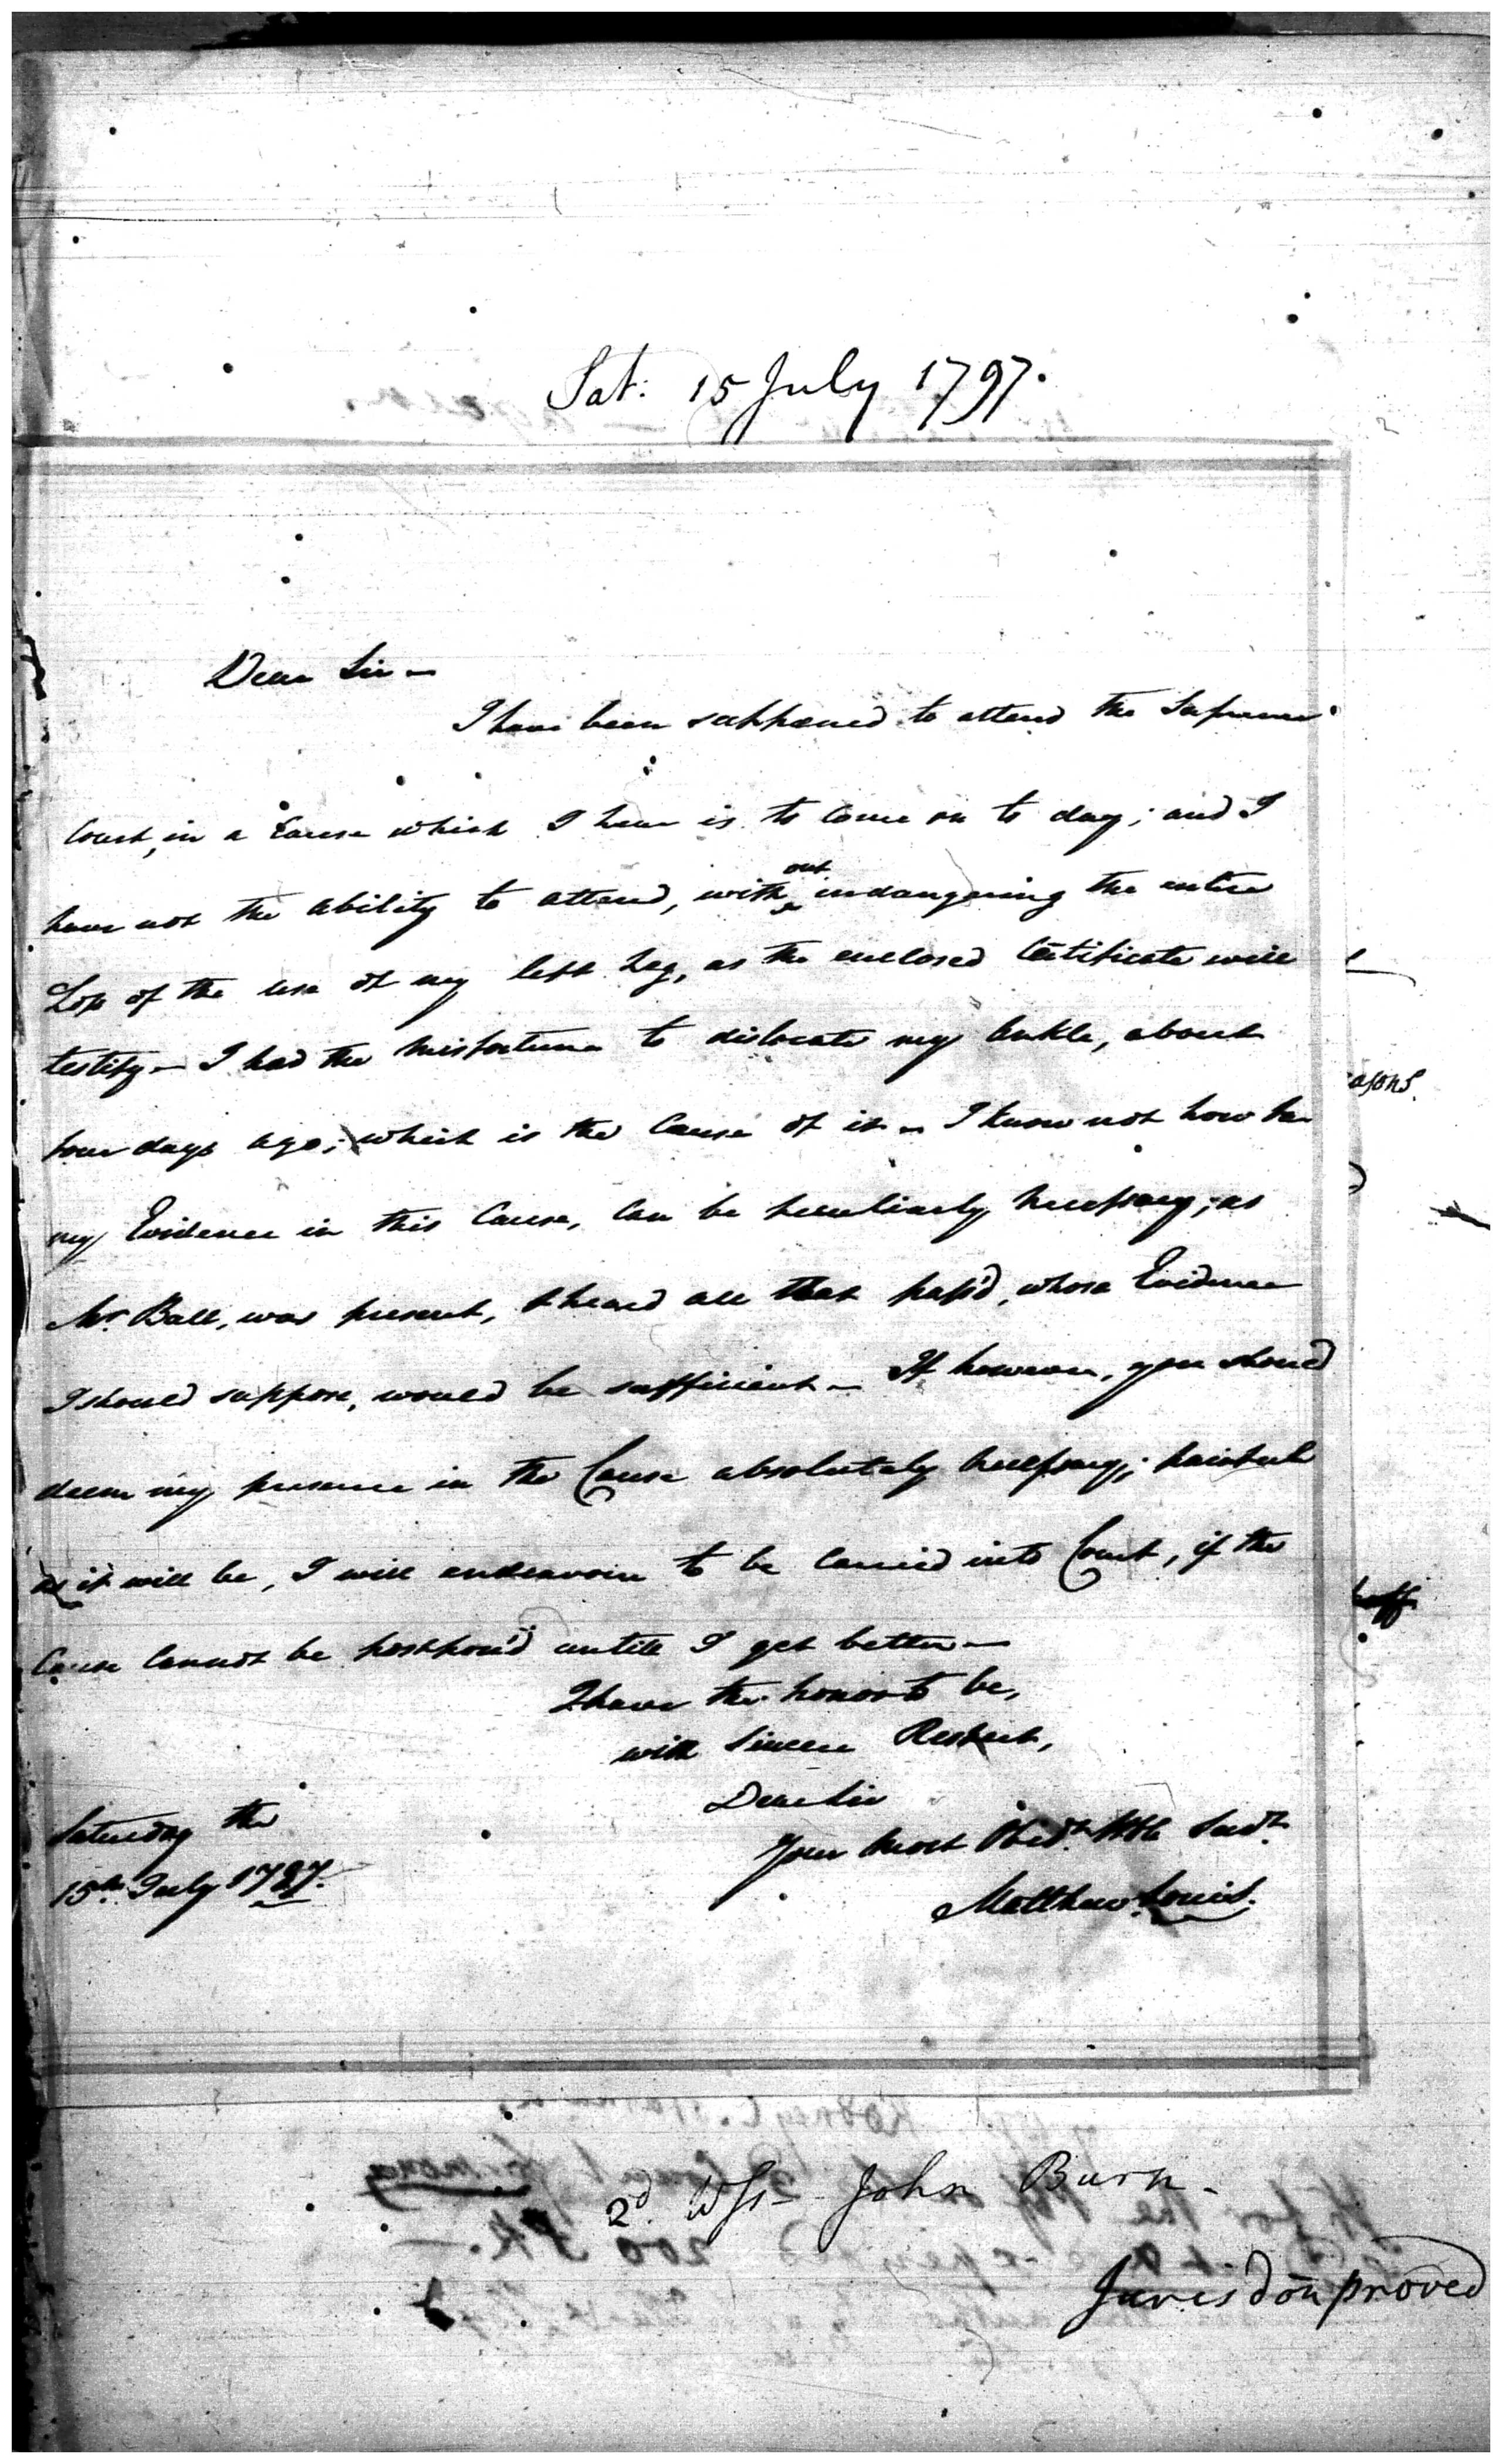 Sat: 15 July 1797.
Dear Sir —
I have been subpœned to attend the Supreme
Court, in a Cause which I hear is to come on to day; and I
have not the ability to attend, without endangering the entire
Loss of the use of my left Leg, as the enclosed Certificate will
testify — I had the misfortune to dislocate my Ankle, about
four days ago; which is the Cause of it — I know not how far
my Evidence in this Cause, can be peculiarly necessary; as
Mr. Ball, was present, & heard all that pass'd, whose Evidence
I should suppose, would be sufficient — If however, you should
deem my presence in the Cause absolutely necessary; painful
as it will be, I will endeavour to be carried into Court, if the
Cause cannot be postpon'd untill I get better —
I have the honor to be,
with Sincere Respect,
Dear Sir
Your most Obedt. Hble Servt.
Matthew Louis.
Saturday the
15th. July 1797.
2d. Wss — John Burn.
Jurisdon proved